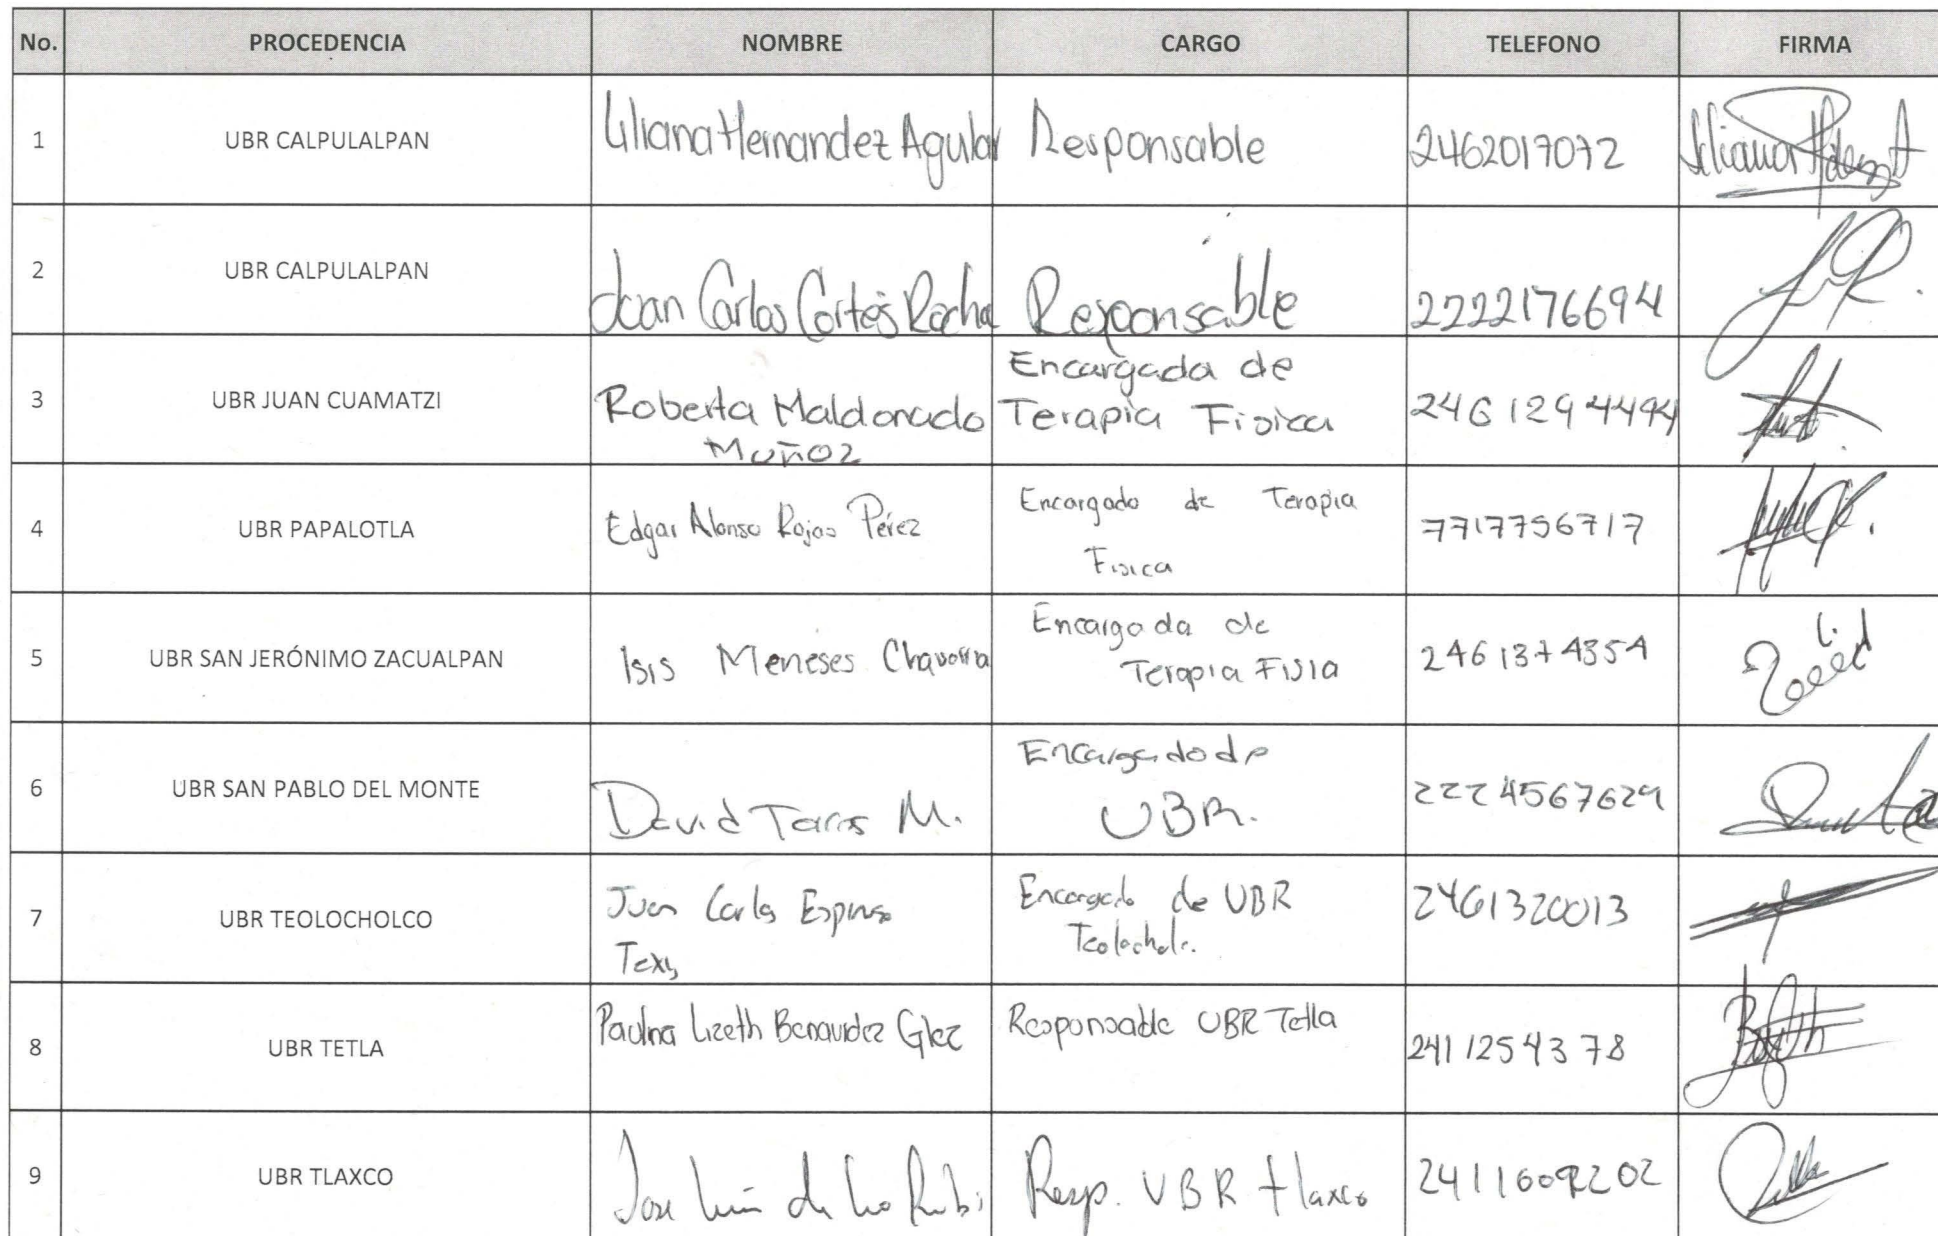 No. PROCEDENCIA NOMBRE CARGO TELEFONO FIRMA
1 UBR CALPULALPAN Liliana Hernandez Aguilar Responsable 2462017072
2 UBR CALPULALPAN Juan Carlos Cortés Rocha Responsable 2222176694
3 UBR JUAN CUAMATZI Roberta Maldonado Encargada de
Muñoz Terapia Fisica 2461294494
4 UBR PAPALOTLA Edgar Alonso Rojas Pérez Encargado de Terapia
Fisica 7717756717
5 UBR SAN JERÓNIMO ZACUALPAN Isis Meneses Chavarria Encargada de
Terapia Fisia 2461374354
6 UBR SAN PABLO DEL MONTE David M. Encargado de
UBR. 2224567629
7 UBR TEOLOCHOLCO Juan Carlos Espinosa Encargado de UBR
Teolocholc. 2461320013
8 UBR TETLA Paulina Lizeth Benavidez Glez Responsable UBR Tetla 2411254378
9 UBR TLAXCO Jose Luis de Rubi Resp. UBR tlaxco 241160